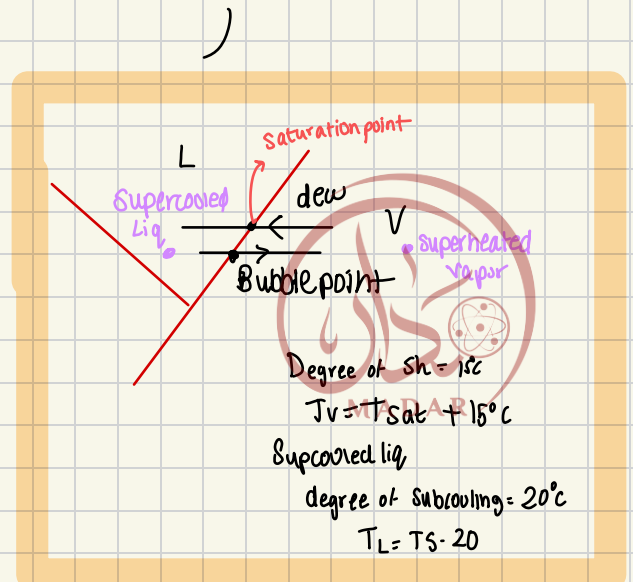 )
saturation point
L
Supercooled
Liq
dew
V
superheated
vapor
Bubble point
Degree of Sh = 15°c
MADAR
Tv = Tsat + 15°C
Supcooled liq
degree of Subcooling = 20°c
TL = TS - 20